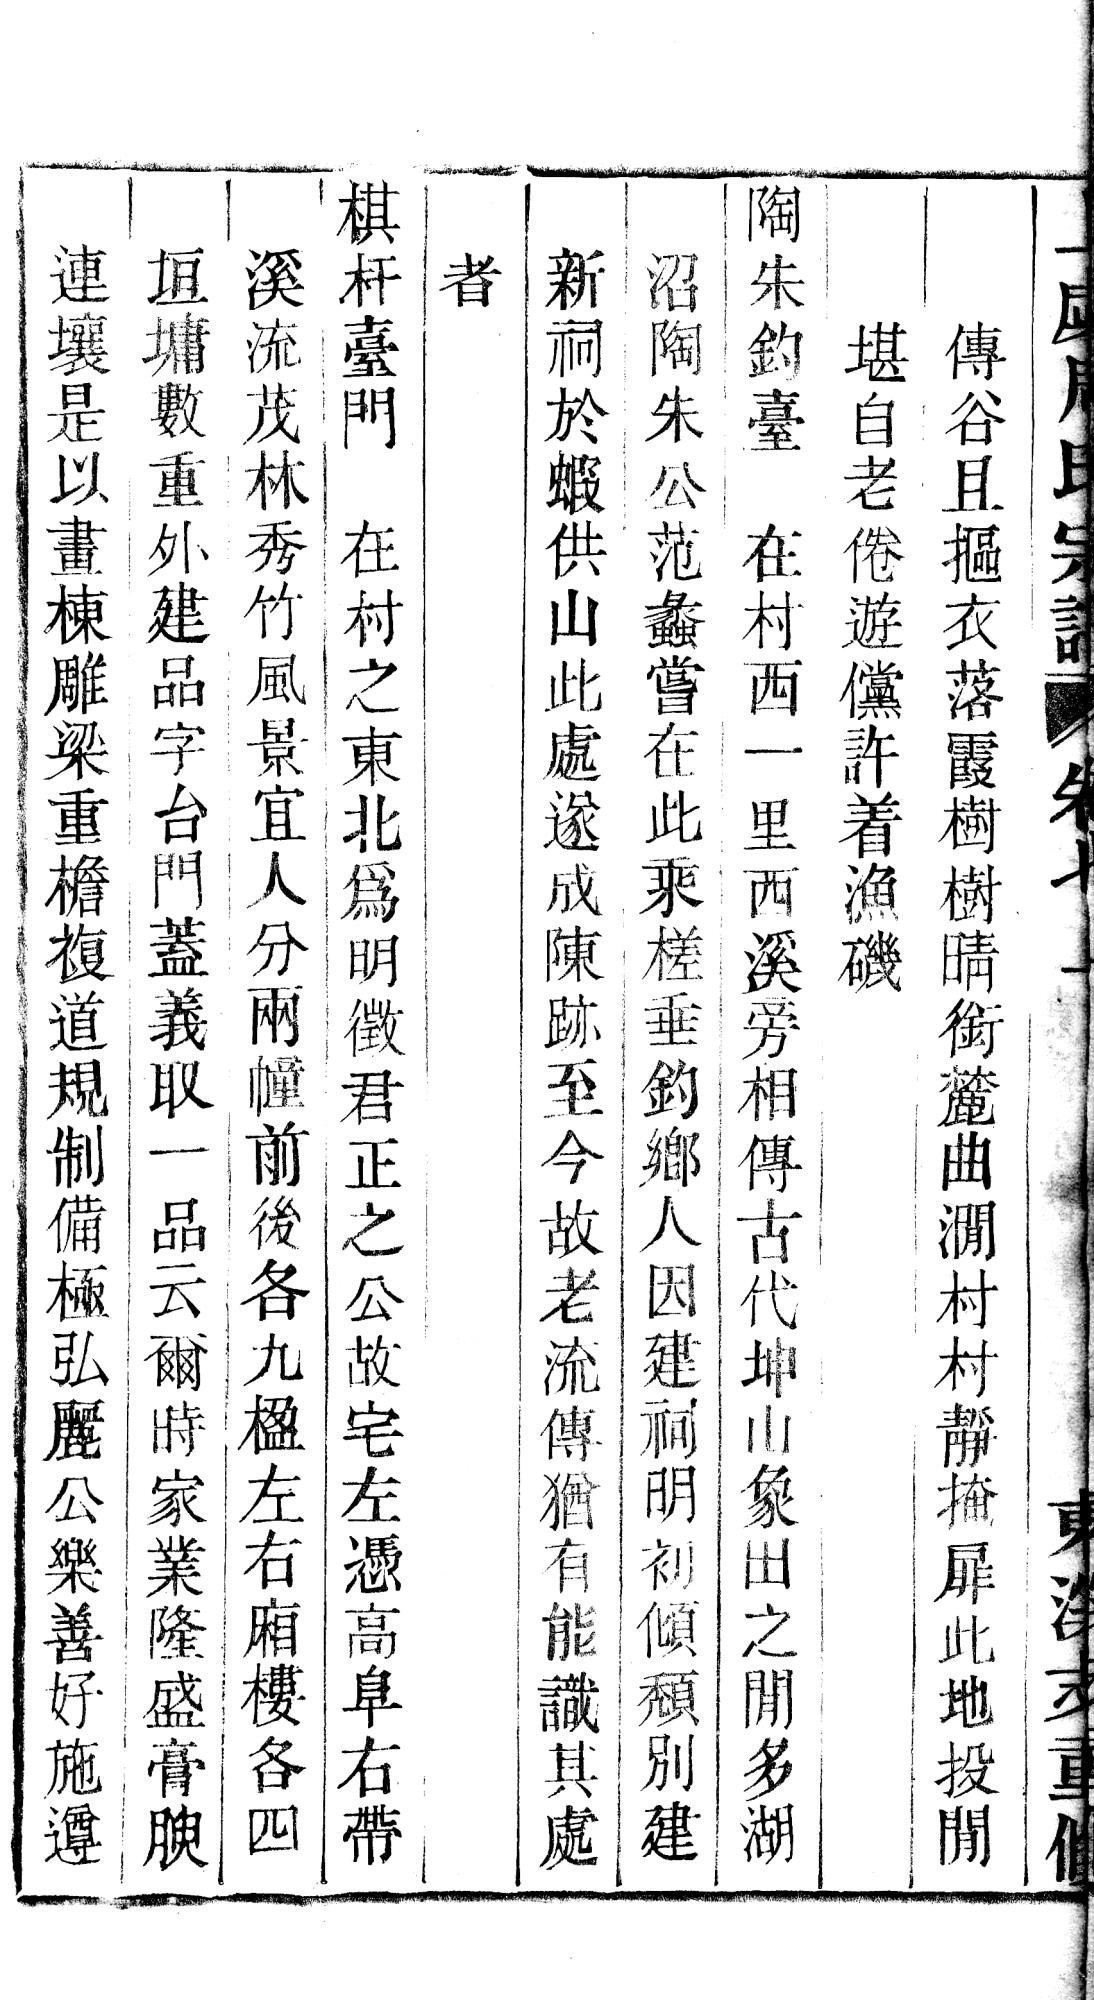 周氏宗譜 卷七 東溪支重修
傳谷且摳衣落霞樹樹晴銜麓曲澗村村靜掩扉此地投閒
堪自老倦遊儻許着漁磯
陶朱釣臺 在村西一里西溪旁相傳古代坤山象田之閒多湖
沼陶朱公范蠡嘗在此乘槎垂釣鄉人因建祠明初傾頹別建
新祠於蝦供山此處遂成陳跡至今故老流傳猶有能識其處
者
棋杆臺門 在村之東北爲明徵君正之公故宅左憑高阜右帶
溪流茂林秀竹風景宜人分兩幢前後各九楹左右廂樓各四
垣墉數重外建品字台門蓋義取一品云爾時家業隆盛膏腴
連壤是以畫棟雕梁重檐複道規制備極弘麗公樂善好施遵